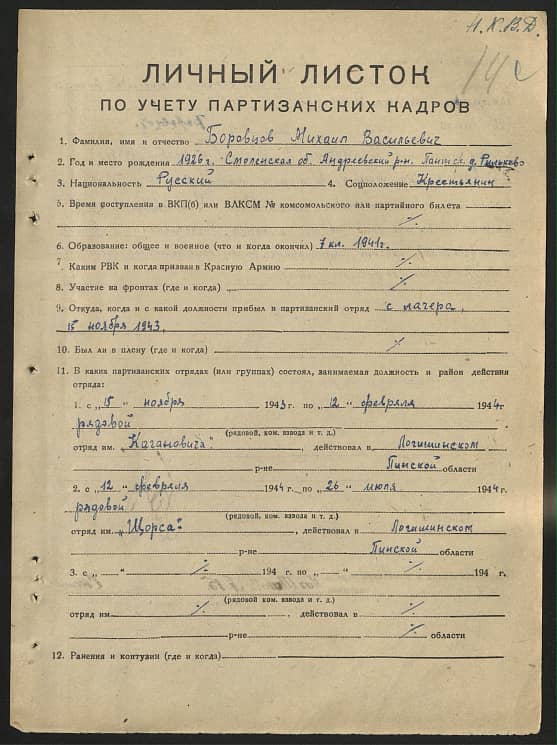 Н.К.В.Д.
ЛИЧНЫЙ ЛИСТОК
ПО УЧЕТУ ПАРТИЗАНСКИХ КАДРОВ
1. Фамилия, имя и отчество Боровцов Михаил Васильевич
2. Год и место рождения 1926 г. Смоленская об. Андреевский р-н. д. Рыльково
3. Национальность Русский 4. Соцположение Крестьянин
5. Время поступления в ВКП(б) или ВЛКСМ № комсомольского или партийного билета
6. Образование: общее и военное (что и когда окончил) 7 кл. 1941 г.
7. Каким РВК и когда призван в Красную Армию
8. Участие на фронтах (где и когда)
9. Откуда, когда и с какой должности прибыл в партизанский отряд с лагера,
15 ноября 1943.
10. Был ли в плену (где и когда)
11. В каких партизанских отрядах (или группах) состоял, занимаемая должность и район действия
отряда:
1. с „15" ноября 1943 г. по „12" февраля 1944 г.
рядовой
(рядовой, ком. взвода и т. д.)
отряд им. „Кагановича", действовал в Логишинском
р-не Пинской области
2. с „12" февраля 1944 г. по „26" июля 1944 г.
рядовой
(рядовой, ком. взвода и т. д.)
отряд им. „Щорса", действовал в Логишинском
р-не Пинской области
3. с „ — " 194 г. по „ — " 194 г.
(рядовой ком. взвода и т. д.)
отряд им. действовал в
р-не области
12. Ранения и контузии (где и когда)